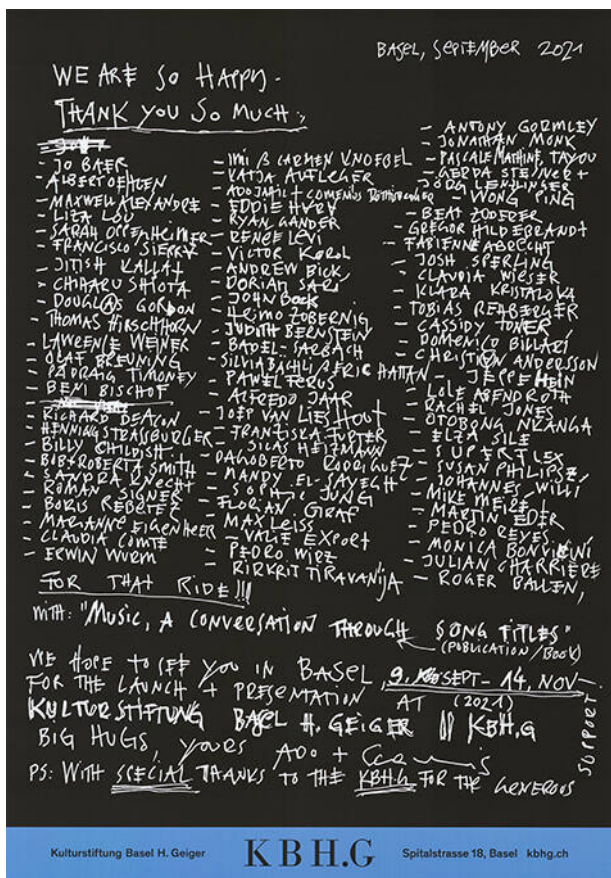 BASEL, SEPTEMBER 2021
WE ARE SO HAPPY -
THANK YOU SO MUCH:
- JO BAER
- ALBERT OEHLEN
- MAXWELL ALEXANDRE
- LIZA LOU
- SARAH OPPENHEIMER
- FRANCISCO SIERRA
- JITISH KALLAT
- CHIHARU SHIOTA
- DOUGLAS GORDON
- THOMAS HIRSCHHORN
- LAWRENCE WEINER
- OLAF BREUNING
- PADRAIG TIMONEY
- BENI BISCHOF
- RICHARD DEACON
- HENNING STRASSBURGER
- BILLY CHILDISH
- BOB + ROBERTA SMITH
- SANDRA KNECHT
- ROMAN SIGNER
- BORIS REBETEZ
- MARIANNE EIGENHEER
- CLAUDIA COMTE
- ERWIN WURM
- IMI & CARMEN KNOEBEL
- KATJA AUFLEGER
- ADO + COMENIUS ROETHLISBERGER
- EDDIE HARA
- RYAN GANDER
- RENÉE LEVI
- VICTOR KOROL
- ANDREW BICK
- DORIAN SARI
- JOHN BOCK
- HEIMO ZOBERNIG
- JUDITH BERNSTEIN
- BADEL-SARBACH
- SILVIA BÄCHLI & ERIC HATTAN
- PAWEL FERUS
- ALFREDO JAAR
- JOEP VAN LIESHOUT
- FRANZISKA FURTER
- SILAS HEIZMANN
- DAGOBERTO RODRIGUEZ
- MANDY EL-SAYEGH
- SOPHIE JUNG
- FLORIAN GRAF
- MAX LEISS
- VALIE EXPORT
- PEDRO WIRZ
- RIRKRIT TIRAVANIJA
- ANTONY GORMLEY
- JONATHAN MONK
- PASCALE MARTHINE TAYOU
- GERDA STEINER +
JÖRG LENZLINGER
- WONG PING
- BEAT ZODERER
- GREGOR HILDEBRANDT
- FABIENNE ABRECHT
- JOSH SPERLING
- CLAUDIA WIESER
- KLARA KRISTALOVA
- TOBIAS REHBERGER
- CASSIDY TONER
- DOMENICO BILLARI
- CHRISTIAN ANDERSSON
- JEPPE HEIN
- LOLE ABENDROTH
- RACHEL JONES
- OTOBONG NKANGA
- ELZA SILE
- SUPERFLEX
- SUSAN PHILIPSZ,
- JOHANNES WILLI
- MIKE MEIRÉ
- MARTIN EDER
- PEDRO REYES
- MONICA BONVICINI
- JULIAN CHARRIÈRE
- ROGER BALLEN,
FOR THAT RIDE!!!
WITH: "MUSIC, A CONVERSATION THROUGH SONG TITLES"
(PUBLICATION/BOOK)
WE HOPE TO SEE YOU IN BASEL, 9. SEPT - 14. NOV
FOR THE LAUNCH + PRESENTATION AT (2021)
KULTURSTIFTUNG BASEL H. GEIGER || KBH.G
BIG HUGS, YOURS ADO +
PS: WITH SPECIAL THANKS TO THE KBH.G FOR THE GENEROUS SUPPORT!
Kulturstiftung Basel H. Geiger KBH.G Spitalstrasse 18, Basel kbhg.ch